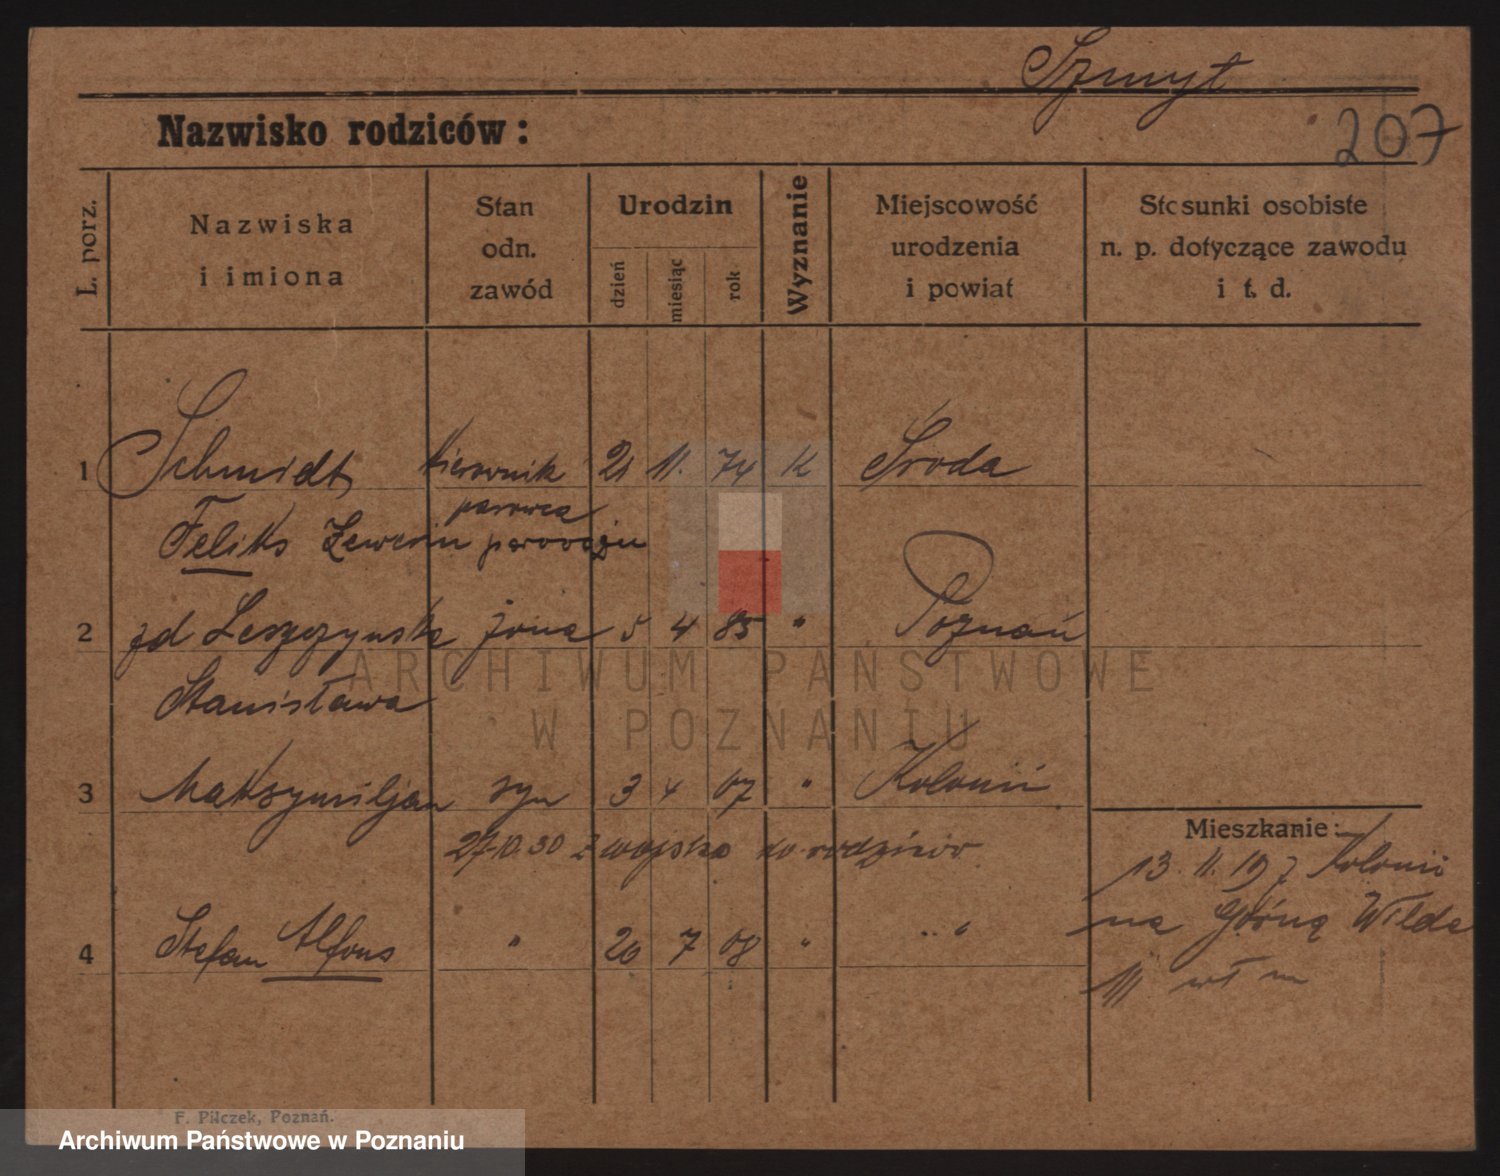 Szmyt
Nazwisko rodziców:
207
L. porz.
Nazwiska
i imiona
Stan
odn.
zawód
Urodzin
dzień
miesiąc
rok
Wyznanie
Miejscowość
urodzenia
i powiat
Stosunki osobiste
n. p. dotyczące zawodu
i t. d.
1 Schmidt kierownik 21 11. 74 K Środa
parowca
Feliks Seweryn parowozu
2 zd Leszczynska żona 5 4 85 " Poznań
Stanisława
3 Maksymiljan syn 3 4 07 " Kolonii
27.10.30 z wojska do rodziców
Mieszkanie:
13. 11. 19 z Kolonii
na Górną Wilda
4 Stefan Alfons " 20 7 08 " " "
111
F. Pilczek, Poznań.
ARCHIWUM PAŃSTWOWE
W POZNANIU
Archiwum Państwowe w Poznaniu